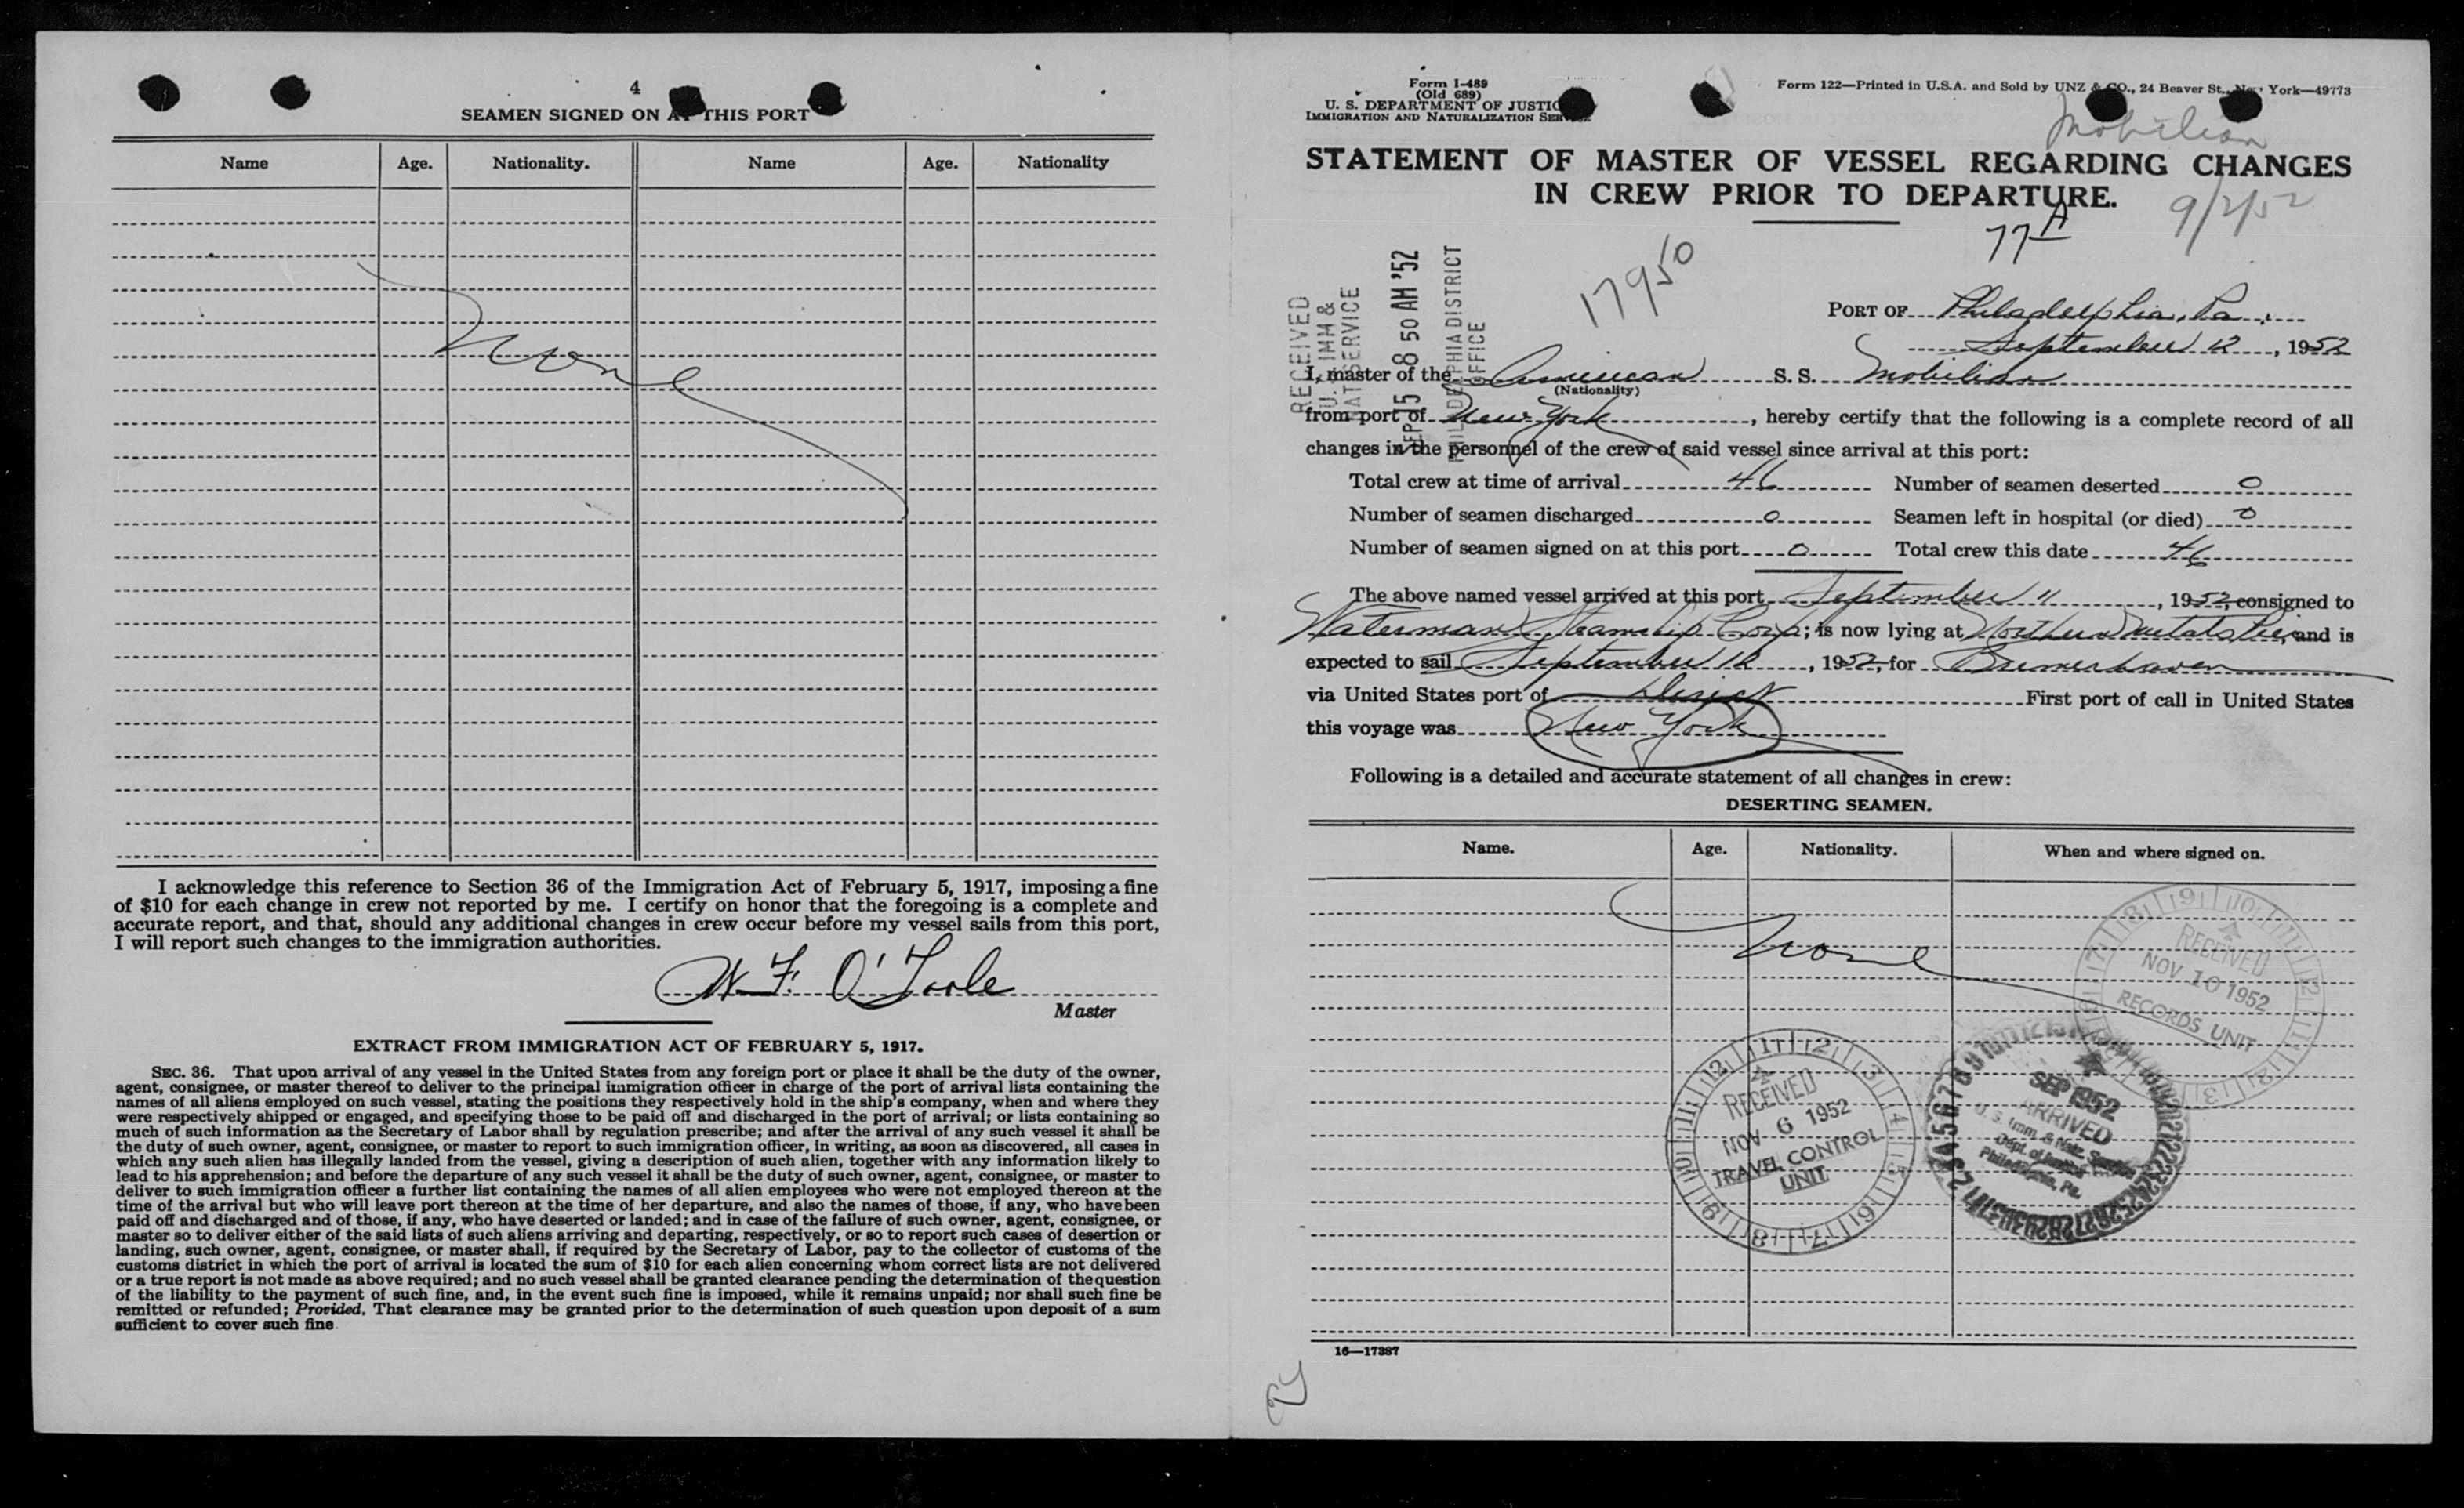 4
SEAMEN SIGNED ON AT THIS PORT
Name Age. Nationality. Name Age. Nationality
None
I acknowledge this reference to Section 36 of the Immigration Act of February 5, 1917, imposing a fine
of $10 for each change in crew not reported by me. I certify on honor that the foregoing is a complete and
accurate report, and that, should any additional changes in crew occur before my vessel sails from this port,
I will report such changes to the immigration authorities.
W. F. O'Toole
Master
EXTRACT FROM IMMIGRATION ACT OF FEBRUARY 5, 1917.
SEC. 36. That upon arrival of any vessel in the United States from any foreign port or place it shall be the duty of the owner,
agent, consignee, or master thereof to deliver to the principal immigration officer in charge of the port of arrival lists containing the
names of all aliens employed on such vessel, stating the positions they respectively hold in the ship's company, when and where they
were respectively shipped or engaged, and specifying those to be paid off and discharged in the port of arrival; or lists containing so
much of such information as the Secretary of Labor shall by regulation prescribe; and after the arrival of any such vessel it shall be
the duty of such owner, agent, consignee, or master to report to such immigration officer, in writing, as soon as discovered, all cases in
which any such alien has illegally landed from the vessel, giving a description of such alien, together with any information likely to
lead to his apprehension; and before the departure of any such vessel it shall be the duty of such owner, agent, consignee, or master to
deliver to such immigration officer a further list containing the names of all alien employees who were not employed thereon at the
time of the arrival but who will leave port thereon at the time of her departure, and also the names of those, if any, who have been
paid off and discharged and of those, if any, who have deserted or landed; and in case of the failure of such owner, agent, consignee, or
master so to deliver either of the said lists of such aliens arriving and departing, respectively, or so to report such cases of desertion or
landing, such owner, agent, consignee, or master shall, if required by the Secretary of Labor, pay to the collector of customs of the
customs district in which the port of arrival is located the sum of $10 for each alien concerning whom correct lists are not delivered
or a true report is not made as above required; and no such vessel shall be granted clearance pending the determination of the question
of the liability to the payment of such fine, and, in the event such fine is imposed, while it remains unpaid; nor shall such fine be
remitted or refunded; Provided, That clearance may be granted prior to the determination of such question upon deposit of a sum
sufficient to cover such fine
Form I-489
(Old 689)
U. S. DEPARTMENT OF JUSTICE
IMMIGRATION AND NATURALIZATION SERVICE
Form 122—Printed in U.S.A. and Sold by UNZ & CO., 24 Beaver St., New York—49773
Mobilian
STATEMENT OF MASTER OF VESSEL REGARDING CHANGES
IN CREW PRIOR TO DEPARTURE.
9/2/52
77A
17950
RECEIVED
U.S. IMM &
NAT SERVICE
SEP 15 8 50 AM '52
PHILADELPHIA DISTRICT
OFFICE
PORT OF Philadelphia, Pa.
September 12, 1952
I, master of the American S. S. Mobilian
(Nationality)
from port of New York, hereby certify that the following is a complete record of all
changes in the personnel of the crew of said vessel since arrival at this port:
Total crew at time of arrival 46 Number of seamen deserted 0
Number of seamen discharged 0 Seamen left in hospital (or died) 0
Number of seamen signed on at this port 0 Total crew this date 46
The above named vessel arrived at this port September 11, 1952, consigned to
Waterman Steamship Corp; is now lying at Northern Metals Pier, and is
expected to sail September 12, 1952, for Bremerhaven
via United States port of Direct First port of call in United States
this voyage was New York
Following is a detailed and accurate statement of all changes in crew:
DESERTING SEAMEN.
Name. Age. Nationality. When and where signed on.
None
RECEIVED
NOV 10 1952
RECORDS UNIT
RECEIVED
NOV 6 1952
TRAVEL CONTROL
UNIT
SEP 1952
ARRIVED
U. S. Imm. & Natz. Service
Dept. of Justice
Philadelphia, Pa.
16—17387